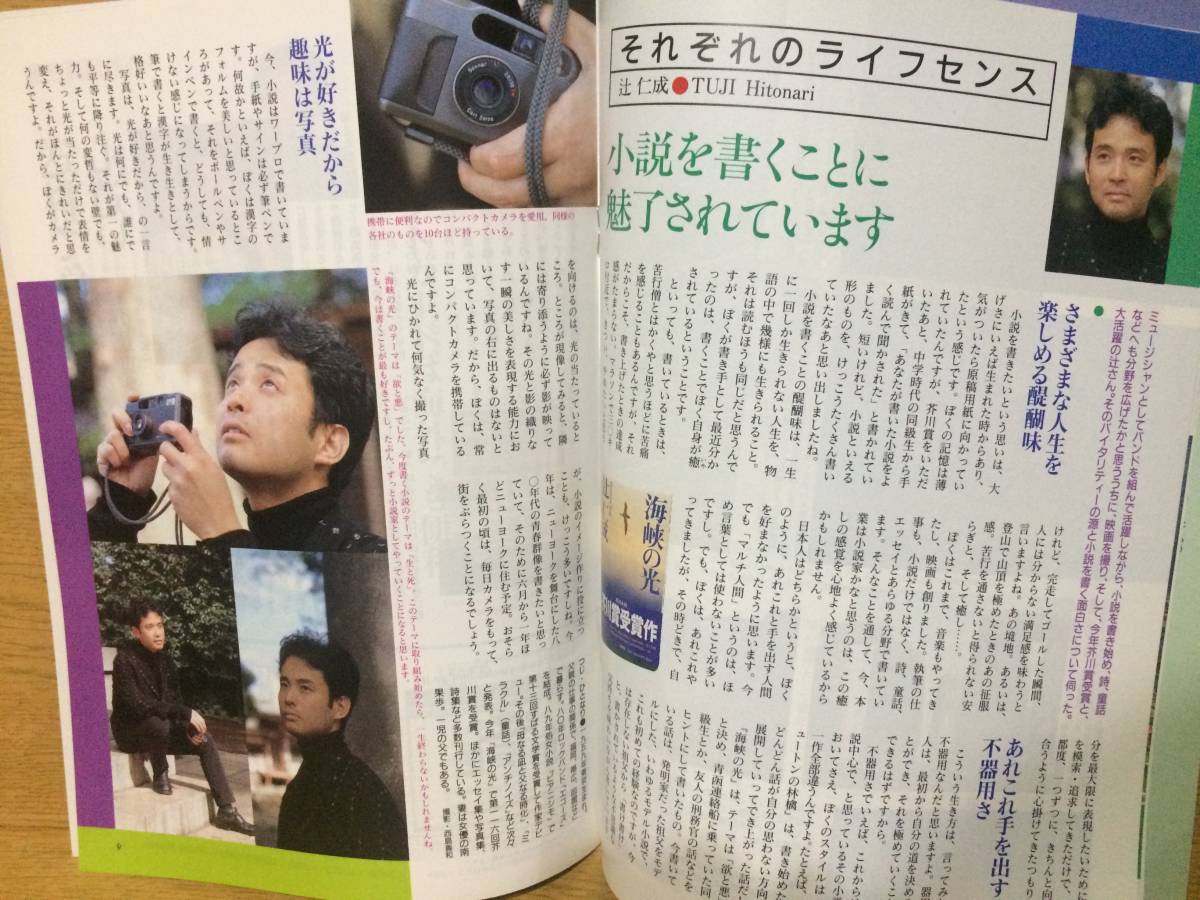 それぞれのライフセンス
辻 仁成●TUJI Hitonari
小説を書くことに
魅了されています
ミュージシャンとしてバンドを組んで活躍しながら、小説を書き始め、詩、童話
などへも分野を広げたかと思ううちに、映画を撮り、そして、今年芥川賞受賞と、
大活躍の辻さん。そのバイタリティーの源と小説を書く面白さについて伺った。
さまざまな人生を
楽しめる醍醐味
小説を書きたいという思いは、大
げさにいえば生まれた時からあり、
気がついたら原稿用紙に向かってい
たという感じです。ぼくの記憶は薄
れていたんですが、芥川賞をいただ
いたあと、中学時代の同級生から手
紙がきて、「あなたが書いた小説をよ
く読んで聞かされた」と書かれてい
ました。短いけれど、小説といえる
形のものを、けっこうたくさん書い
ていたなあと思い出しましたね。
小説を書くことの醍醐味は、一生
に一回しか生きられない人生を、物
語の中で幾様にも生きられること。
それは読むほうも同じだと思うんで
すが、ぼくが書き手として最近分か
ったのは、書くことでぼく自身が癒
されているということです。
といっても、書いているときは、
苦行僧とはかくやと思うほどに苦痛
を感じることもあるんですが、それ
だからこそ、書き上げたときの達成
感がたまらない。
けれど、完走してゴールした瞬間、
人には分からない満足感を味わうと
言いますよね。あの境地。あるいは、
登山で山頂を極めたときのあの征服
感。苦行を通さないと得られない安
らぎと、そして癒し……。
ぼくはこれまで、音楽もやってき
たし、映画も創りました。執筆の仕
事も、小説だけではなく、詩、童話、
エッセイとあらゆる分野で書いてい
ます。そんなことを通して、今、本
業は小説家かなと思うのは、この癒
しの感覚を心地よく感じているから
かもしれません。
日本人はどちらかというと、ぼく
のように、あれこれと手を出す人間
を好まなかったように思います。今
でも「マルチ人間」というのは、ほ
め言葉としては使わないことが多い
ですし。でも、ぼくは、あれこれや
ってきましたが、その時どきで、自
海峡の光
賞受賞作
分を最大限に表現したいために
を模索・追求してきただけで、
都度、一つずつに、きちんと向
合うように心掛けてきたつもり
あれこれ手を出す
不器用さ
こういう生き方は、言ってみ
不器用なんだと思いますよ。器
人は、最初から自分の道を決め
とができ、それを極めていくこ
できるはずですから。
不器用さでいえば、これからは
説中心で、と思っているその小
おいてさえ、ぼくのスタイルは
一作全部違うんですよ。たとえば、
ュートンの林檎」は、書き始めた
どんどん話が自分の思わない方向
展開していってでき上がった話だし
「海峡の光」は、テーマは「欲と悪」
と決め、青函連絡船に乗っていた同
級生とか、友人の刑務官の話などを
ヒントにして書いたもの。今書いて
いる話は、発明家だった祖父をモデ
ルにした、いわゆるモデル小説で、
これも初めての経験なのですが、今
光が好きだから
趣味は写真
今、小説はワープロで書いていま
すが、手紙やサインは必ず筆ペンで
す。何故かといえば、ぼくは漢字の
フォルムを美しいと思っているとこ
ろがあって、それをボールペンやサ
インペンで書くと、どうしても、情
けない感じになってしまうからです。
筆で書くと漢字が生き生きとして、
格好いいなあと思うんですよ。
写真は、光が好きだから、の一言
に尽きます。光は何にでも、誰にで
も平等に降り注ぐ。それが第一の魅
力。そして何の変哲もない壁でも、
ちょっと光が当たっただけで表情を
変え、それがほんとにきれいだと思
うんですよ。だから、ぼくがカメラ
Sonnar
Carl Zeiss
携帯に便利なのでコンパクトカメラを愛用。同様の
各社のものを10台ほど持っている。
を向けるのは、光の当たっていると
ころ。ところが現像してみると、隣
には寄り添うように必ず影が映って
いるんですね。その光と影の織りな
す一瞬の美しさを表現する能力にお
いて、写真の右に出るものはないと
思っています。だから、ぼくは、常
にコンパクトカメラを携帯している
んですよ。
光にひかれて何気なく撮った写真
が、小説のイメージ作りに役に立つ
ことも、けっこう多いですしね。今
年は、ニューヨークを舞台にした八
〇年代の青春群像を書きたいと思っ
ていて、そのために六月から一年ほ
どニューヨークに住む予定。おそら
く最初の頃は、毎日カメラをもって、
街をぶらつくことになるでしょう。
「海峡の光」のテーマは「欲と悪」でした。今度書く小説のテーマは「生と死」。このテーマに取り組み始めたら、一生終わらないかもしれませんね。
でも、今は書くことが最も好きですし、たぶん、ずっと小説家としてやっていくことになると思います。
つじ・ひとなり●一九五九年東京生まれ。
父親の仕事の関係で、福岡、帯広、函館など
で暮らす。八〇年ロックバンド「エコーズ」
を結成。八九年処女小説「ピアニシモ」で
第十三回すばる文学賞を受賞して作家デビ
ュー。その後、「母なる凪と父なる時化」、「ミ
ラクル」（童話）、「アンチノイズ」など次々
と発表。今年、「海峡の光」で第一一六回芥
川賞を受賞。ほかにエッセイ集や写真集、
詩集など多数刊行している。妻は女優の南
果歩。一児の父でもある。
撮影・西島善和
9